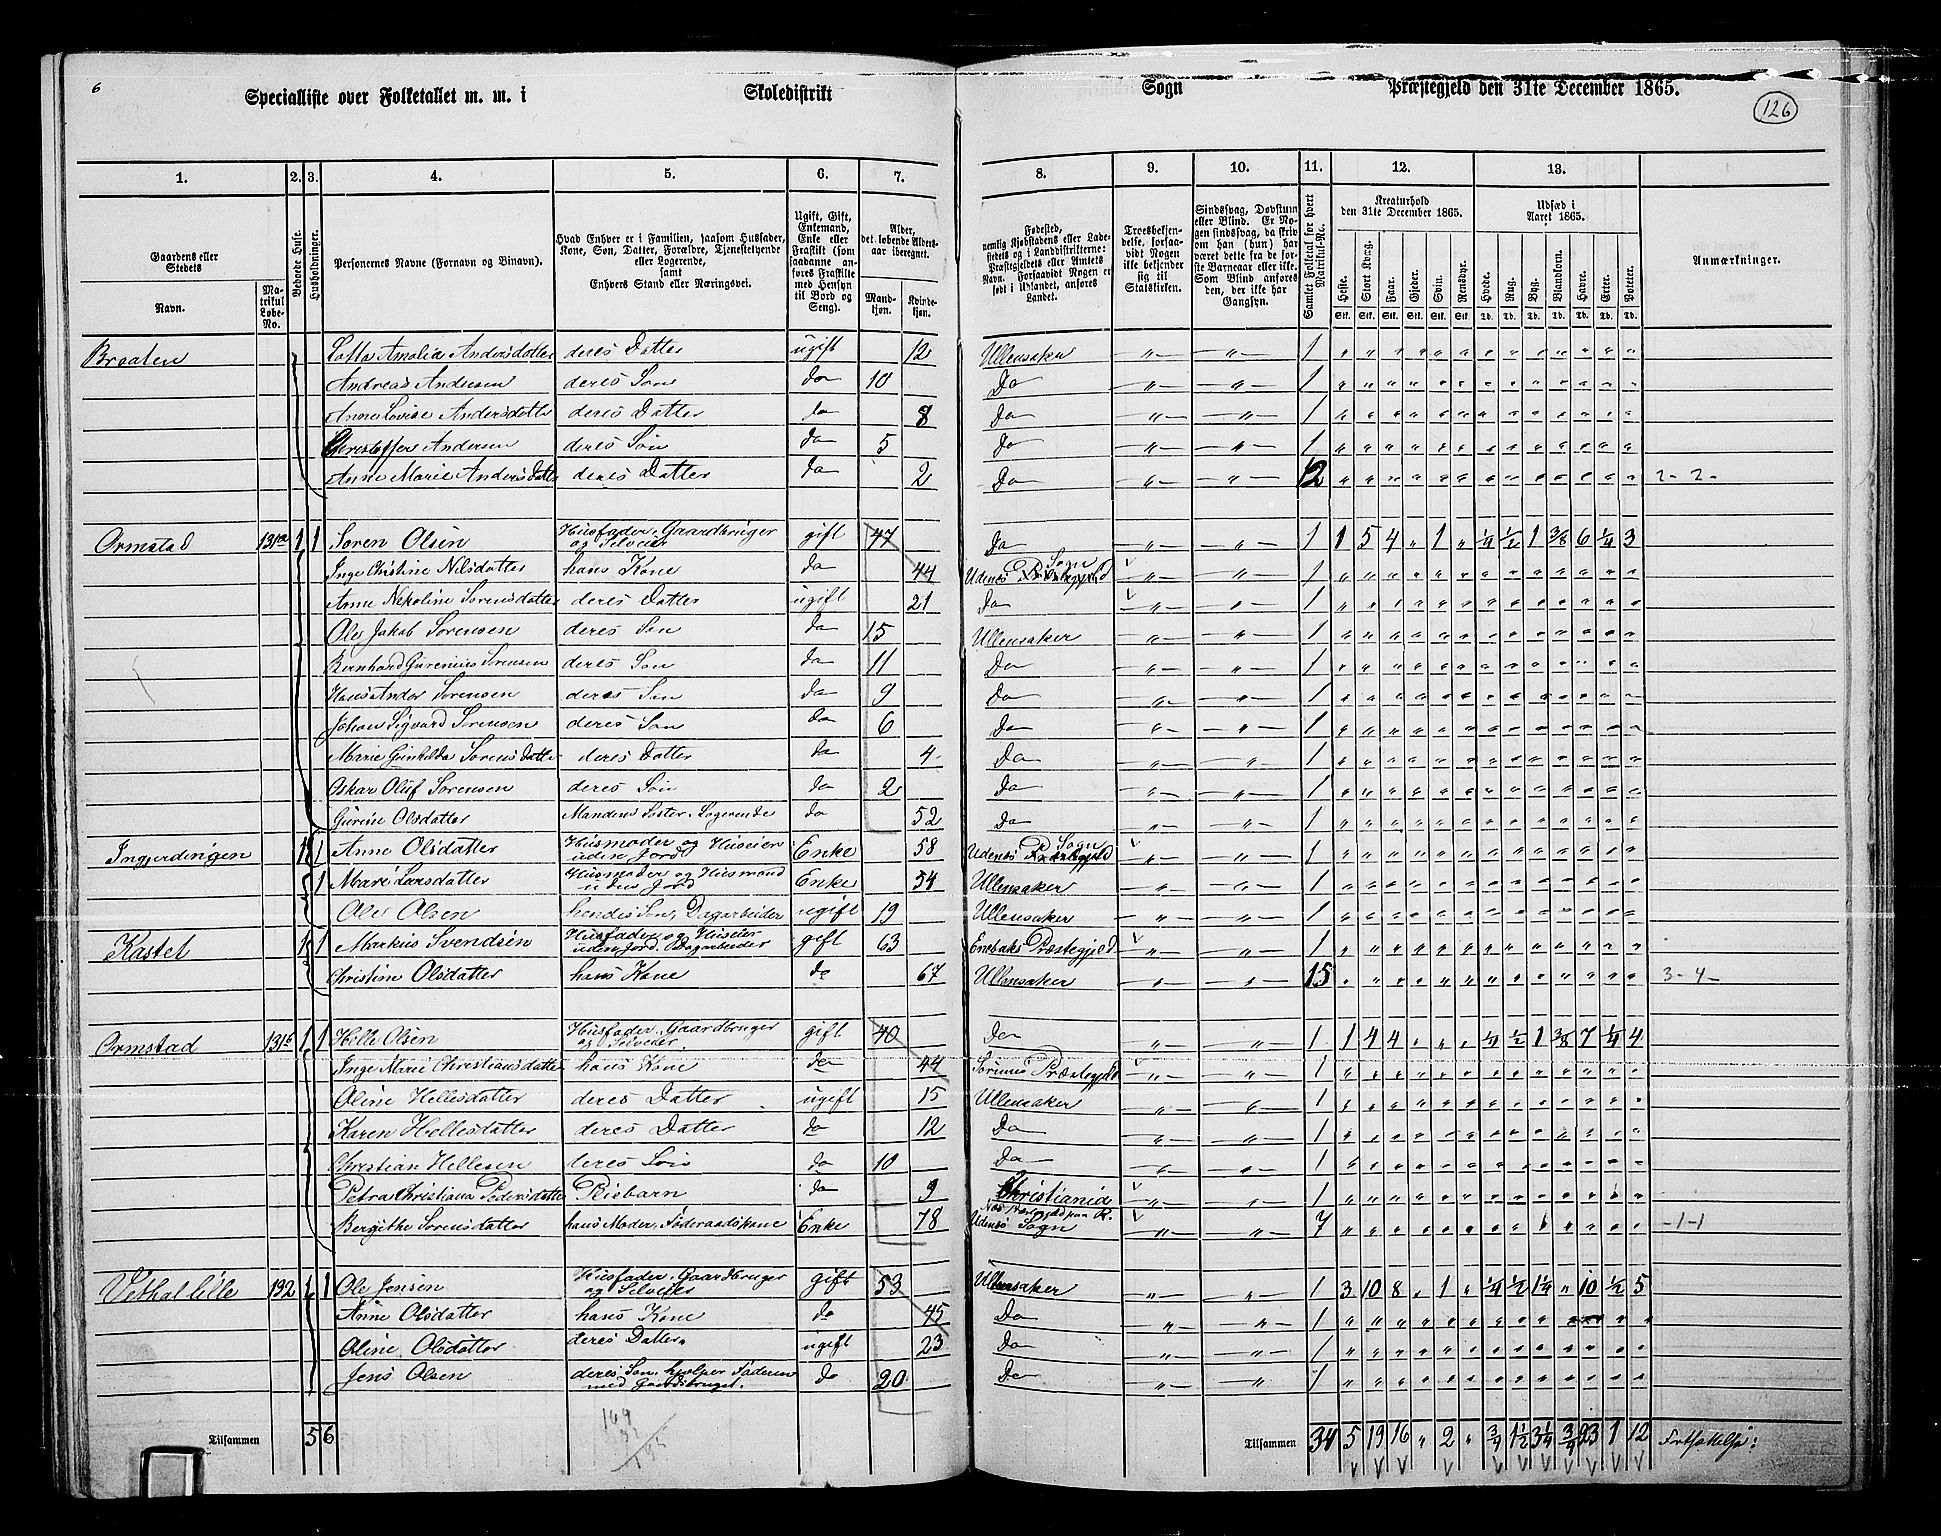 6
Specialliste over Folketallet m. m. i Skoledistrikt Sogn Præstegjeld den 31te December 1865.
126
1. 2. 3. 4. 5. 6. 7. 8. 9. 10. 11. 12. 13.
Gaardens eller Stedets
Navn.
Matrikul Løbe-No.
Beboede Huse.
Husholdninger.
Personernes Navne (Fornavn og Binavn).
Hvad Enhver er i Familien, saasom Husfader, Kone, Søn, Datter, Forældre, Tjenestetyende eller Logerende,
samt
Enhvers Stand eller Næringsvei.
Ugift, Gift, Enkemand, Enke eller Fraskilt (som saadanne anføres Fraskilte med Hensyn til Bord og Seng).
Alder, det løbende Aldersaar iberegnet.
Mandkjøn. Kvindekjøn.
Fødested, nemlig Kjøbstadens eller Ladestedets og i Landdistrikterne: Præstegjeldets eller Amtets Navn. Forsaavidt Nogen er født i Udlandet, anføres Landet.
Troesbekjendelse, forsaavidt Nogen ikke bekjender sig til Statskirken.
Sindssvag, Døvstum eller Blind. Er Nogen sindssvag, da skriv om han (hun) har været dette fra de første Barneaar eller ikke. Som Blind anføres den, der ikke har Gangsyn.
Samlet Folketal for hvert Matrikul-No.
Kreaturhold den 31te December 1865.
Heste. Stort Kvæg. Faar. Gjeder. Svin. Rensdyr.
Stk. Stk. Stk. Stk. Stk. Stk.
Udsæd i Aaret 1865.
Hvede. Rug. Byg. Blandkorn. Havre. Erter. Poteter.
Td. Td. Td. Td. Td. Td. Td.
Anmærkninger.
Braaten Lotta Amalia Andersdatter deres Datter ugift 12 Ullensaker 1
Andreas Andersen deres Søn do 10 Do 1
Anne Lovise Andersdatter deres Datter do 8 Do 1
Christoffer Andersen deres Søn do 5 Do 1
Anne Marie Andersdatter deres Datter do 2 Do 12 2-2-
Ormstad 131a 1 1 Søren Olsen Husfader, Gaardbruger og Selveier gift 47 Do 1 1 5 4 „ 1 „ 1/4 1/2 1 3/8 6 1/4 3
Inge Christine Nilsdatter hans Kone do 44 Udenes Sogn 1
Anne Nekoline Sørensdatter deres Datter ugift 21 Do 1
Ole Jakob Sørensen deres Søn do 15 Ullensaker 1
Bernhard Gurenius Sørensen deres Søn do 11 Do 1
Hans Andor Sørensen deres Søn do 9 Do 1
Johan Sigvard Sørensen deres Søn do 6 Do 1
Marie Gunhilda Sørensdatter deres Datter do 4 Do 1
Oskar Oluf Sørensen deres Søn do 2 Do 1
Gurine Olsdatter Mandens Søster, Logerende do 52 Do 1
Ingjerdingen 1 1 Anne Olsdatter Husmoder og Huseier uden Jord Enke 58 Udenes Sogn 1
1 Mari Larsdatter Husmoder og Husmand uden Jord Enke 54 Ullensaker 1
Ole Olsen hendes Søn, Dagarbeider ugift 19 Ullensaker 1
Kastet 1 1 Markus Svendsen Husfader og Huseier uden Jord, Dagarbeider gift 63 Enebaks Præstegjeld 1
Christine Olsdatter hans Kone do 67 Ullensaker 15 3-4-
Ormstad 131b 1 1 Helle Olsen Husfader, Gaardbruger og Selveier. gift 40 Do 1 1 4 4 „ „ „ 1/4 1/2 1 3/8 7 1/4 4
Inge Marie Christiansdatter hans Kone do 44 Sørums Præstegjeld 1
Oline Hellesdatter deres Datter ugift 15 Ullensaker 1
Karen Hellesdatter deres Datter do 12 Do 1
Christian Hellesen deres Søn do 10 Do 1
Petra Christiana Pedersdatter Pleiebarn do 9 Christiania 1
Bergithe Sørensdatter hans Moder, Føderaadskone Enke 78 Udenes Sogn 7 -1-1
Vethal lille 132 1 1 Ole Jensen Husfader, Gaardbruger og Selveier gift 53 Ullensaker 1 3 10 8 „ 1 „ 1/4 1/2 1 1/4 „ 10 1/2 5
Anne Olsdatter hans Kone do 45 Do 1
Oline Olsdatter deres Datter ugift 23 Do 1
Jens Olsen deres Søn, hjelper Faderen med Gaardsbruget. do 20 Do 1
Tilsammen 5 6 Tilsammen 34 5 19 16 „ 2 „ 3/4 1 1/2 3 1/4 3/4 23 1 12 Fortsættelse: